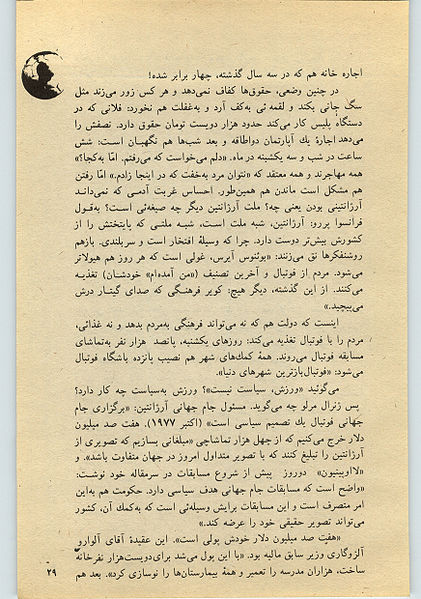 اجاره خانه هم که در سه سال گذشته، چهار برابر شده!
در چنین وضعی، حقوق‌ها کفاف نمی‌دهد و هر کس زور می‌زند مثل
سگ جانی بکند و لقمه ئی به‌کف آرد و به‌غفلت هم نخورد: فلانی که در
دستگاه پلیس کار می‌کند حدود هزار دویست تومان حقوق دارد. نصفش را
می‌دهد اجارهٔ یك آپارتمان دواطاقه و بعد شب‌ها هم نگهبان است: شش
ساعت در شب و سه یکشینه در ماه. «دلم می‌خواست که می‌رفتم. امّا به‌کجا؟»
همه مهاجرند و همه معتقد که «نتوان مرد به‌خفت که در اینجا زادم.» امّا رفتن
هم مشکل است ماندن هم همین‌طور. احساس غربت آدمی که نمی‌داند
آرژانتینی بودن یعنی چه؟ ملت آرژانتین دیگر چه صیغه‌ئی است؟ به‌قول
فرانسوا پررو: آرژانتین، شبه ملت است، شبه ملتی که پایتختش را از
کشورش بیش‌تر دوست دارد. چرا که وسیلهٔ افتخار است و سربلندی. بازهم
روشنفکرها نق می‌زنند: «بوئنوس آیرس، غولی است که هر روز هم هیولاتر
می‌شود. مردم از فوتبال و آخرین تصنیف («من آمده‌ام» خودشان) تغذیه
می‌کنند. از این گذشته، دیگر هیچ: کویر فرهنگی که صدای گیتار درش
می‌پیچید.»
اینست که دولت هم که نه می‌تواند فرهنگی به‌مردم بدهد و نه غذائی،
مردم را با فوتبال تغذیه می‌کند: روزهای یکشنبه، پانصد هزار نفر به‌تماشای
مسابقه فوتبال می‌روند. همهٔ کمك‌های شهر هم نصیب پانزده باشگاه فوتبال
می‌شود: «فوتبال‌بازترین شهرهای دنیا».
می‌گوئید «ورزش، سیاست نیست»؟ ورزش به‌سیاست چه کار دارد؟
پس ژنرال مرلو چه می‌گوید. مسئول جام جهانی آرژانتین: «برگزاری جام
جهانی فوتبال یك تصمیم سیاسی است» (اکتبر ۱۹۷۷). هفت صد میلیون
دلار خرج می‌کنیم که از چهل هزار تماشاچی «مبلغانی بسازیم که تصویری از
آرژانتین را تبلیغ کنند که با تصویر متداول امروز در جهان متفاوت باشد». و
«لااوپینیون» دوروز پیش از شروع مسابقات در سرمقاله خود نوشت:
«واضح است که مسابقات جام جهانی هدف سیاسی دارد. حکومت هم به‌این
امر متصرف است و این مسابقات برایش وسیله‌ئی است که به‌کمك آن، کشور
می‌تواند تصویر حقیقی خود را عرضه کند.»
«هفت صد میلیون دلار خودش پولی است». این عقیدهٔ آقای آلوارو
آلزوگاری وزیر سابق مالیه بود. «با این پول می‌شد برای‌دویست‌هزار نفرخانه
ساخت، هزاران مدرسه را تعمیر و همهٔ بیمارستان‌ها را نوسازی کرد». بعد هم
۲۹